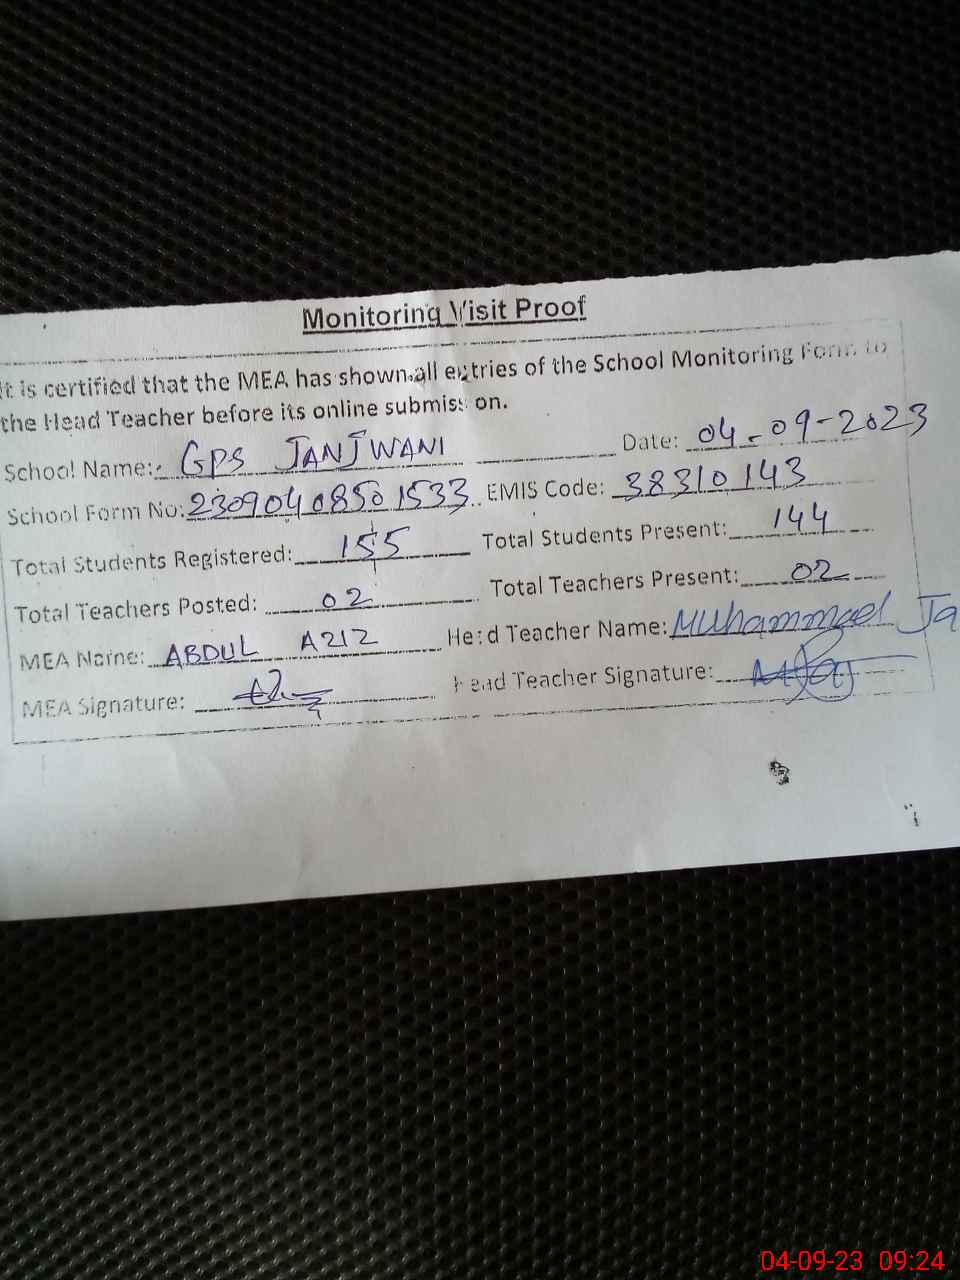 Monitoring Visit Proof
It is certified that the MEA has shown all entries of the School Monitoring Form to
the Head Teacher before its online submission.
School Name: GPS JANJWANI Date: 04-09-2023
School Form No: 23090408501533 EMIS Code: 38310143
Total Students Registered: 155 Total Students Present: 144
Total Teachers Posted: 02 Total Teachers Present: 02
MEA Name: ABDUL AZIZ Head Teacher Name: Muhammad Ja
MEA Signature: Head Teacher Signature:
04-09-23 09:24